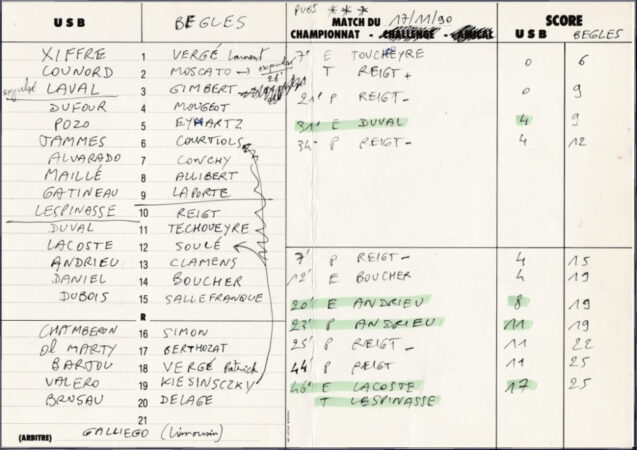 U S B BEGLES PUES *** MATCH DU 17/11/90 SCORE
CHAMPIONNAT - CHALLENGE - AMICAL U S B BEGLES
XIFFRE 1 VERGÉ Laurent 7' E TOUCHEYRE 0 6
COUNORD 2 MOSCATO → expulsé 28' T REIGT +
expulsé LAVAL 3 GIMBERT 21' P REIGT - 0 9
DUFOUR 4 MOUGEOT
POZO 5 EYHARTZ 31' E DUVAL 4 9
JAMMES 6 COURTIOLS 34' P REIGT - 4 12
ALVARADO 7 CONCHY
MAILLÉ 8 ALLIBERT
GATINEAU 9 LAPORTE
LESPINASSE 10 REIGT
DUVAL 11 TECHOUEYRE
LACOSTE 12 SOULÉ
ANDRIEU 13 CLAMENS 7' P REIGT - 4 15
DANIEL 14 BOUCHER 12' E BOUCHER 4 19
DUBOIS 15 SALLEFRANQUE 20' E ANDRIEU 8 19
R 23' P ANDRIEU 11 19
CHAMBERON 16 SIMON 25' P REIGT - 11 22
DI MARTY 17 BERTHOZAT
BARTOU 18 VERGÉ Patrick 44' P REIGT 11 25
VALERO 19 KIESINSCZKY 46' E LACOSTE 17 25
BRUSAU 20 DELAGE T LESPINASSE
21
(ARBITRE) GALLIEGO (Limousin)